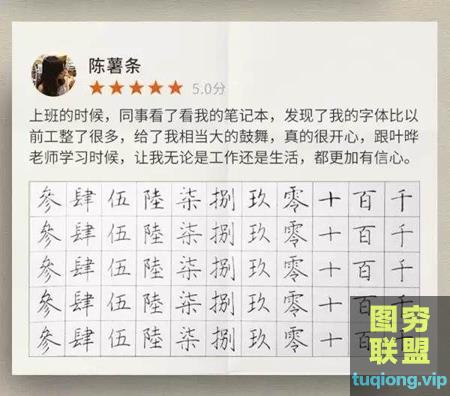 陈薯条
5.0分
上班的时候，同事看了看我的笔记本，发现了我的字体比以
前工整了很多，给了我相当大的鼓舞，真的很开心，跟叶晔
老师学习时候，让我无论是工作还是生活，都更加有信心。
參肆伍陸柒捌玖零十百千
參肆伍陸柒捌玖零十百千
參肆伍陸柒捌玖零十百千
參肆伍陸柒捌玖零十百千
參肆伍陸柒捌玖零十百千
图穷
联盟
tuqiong.vip